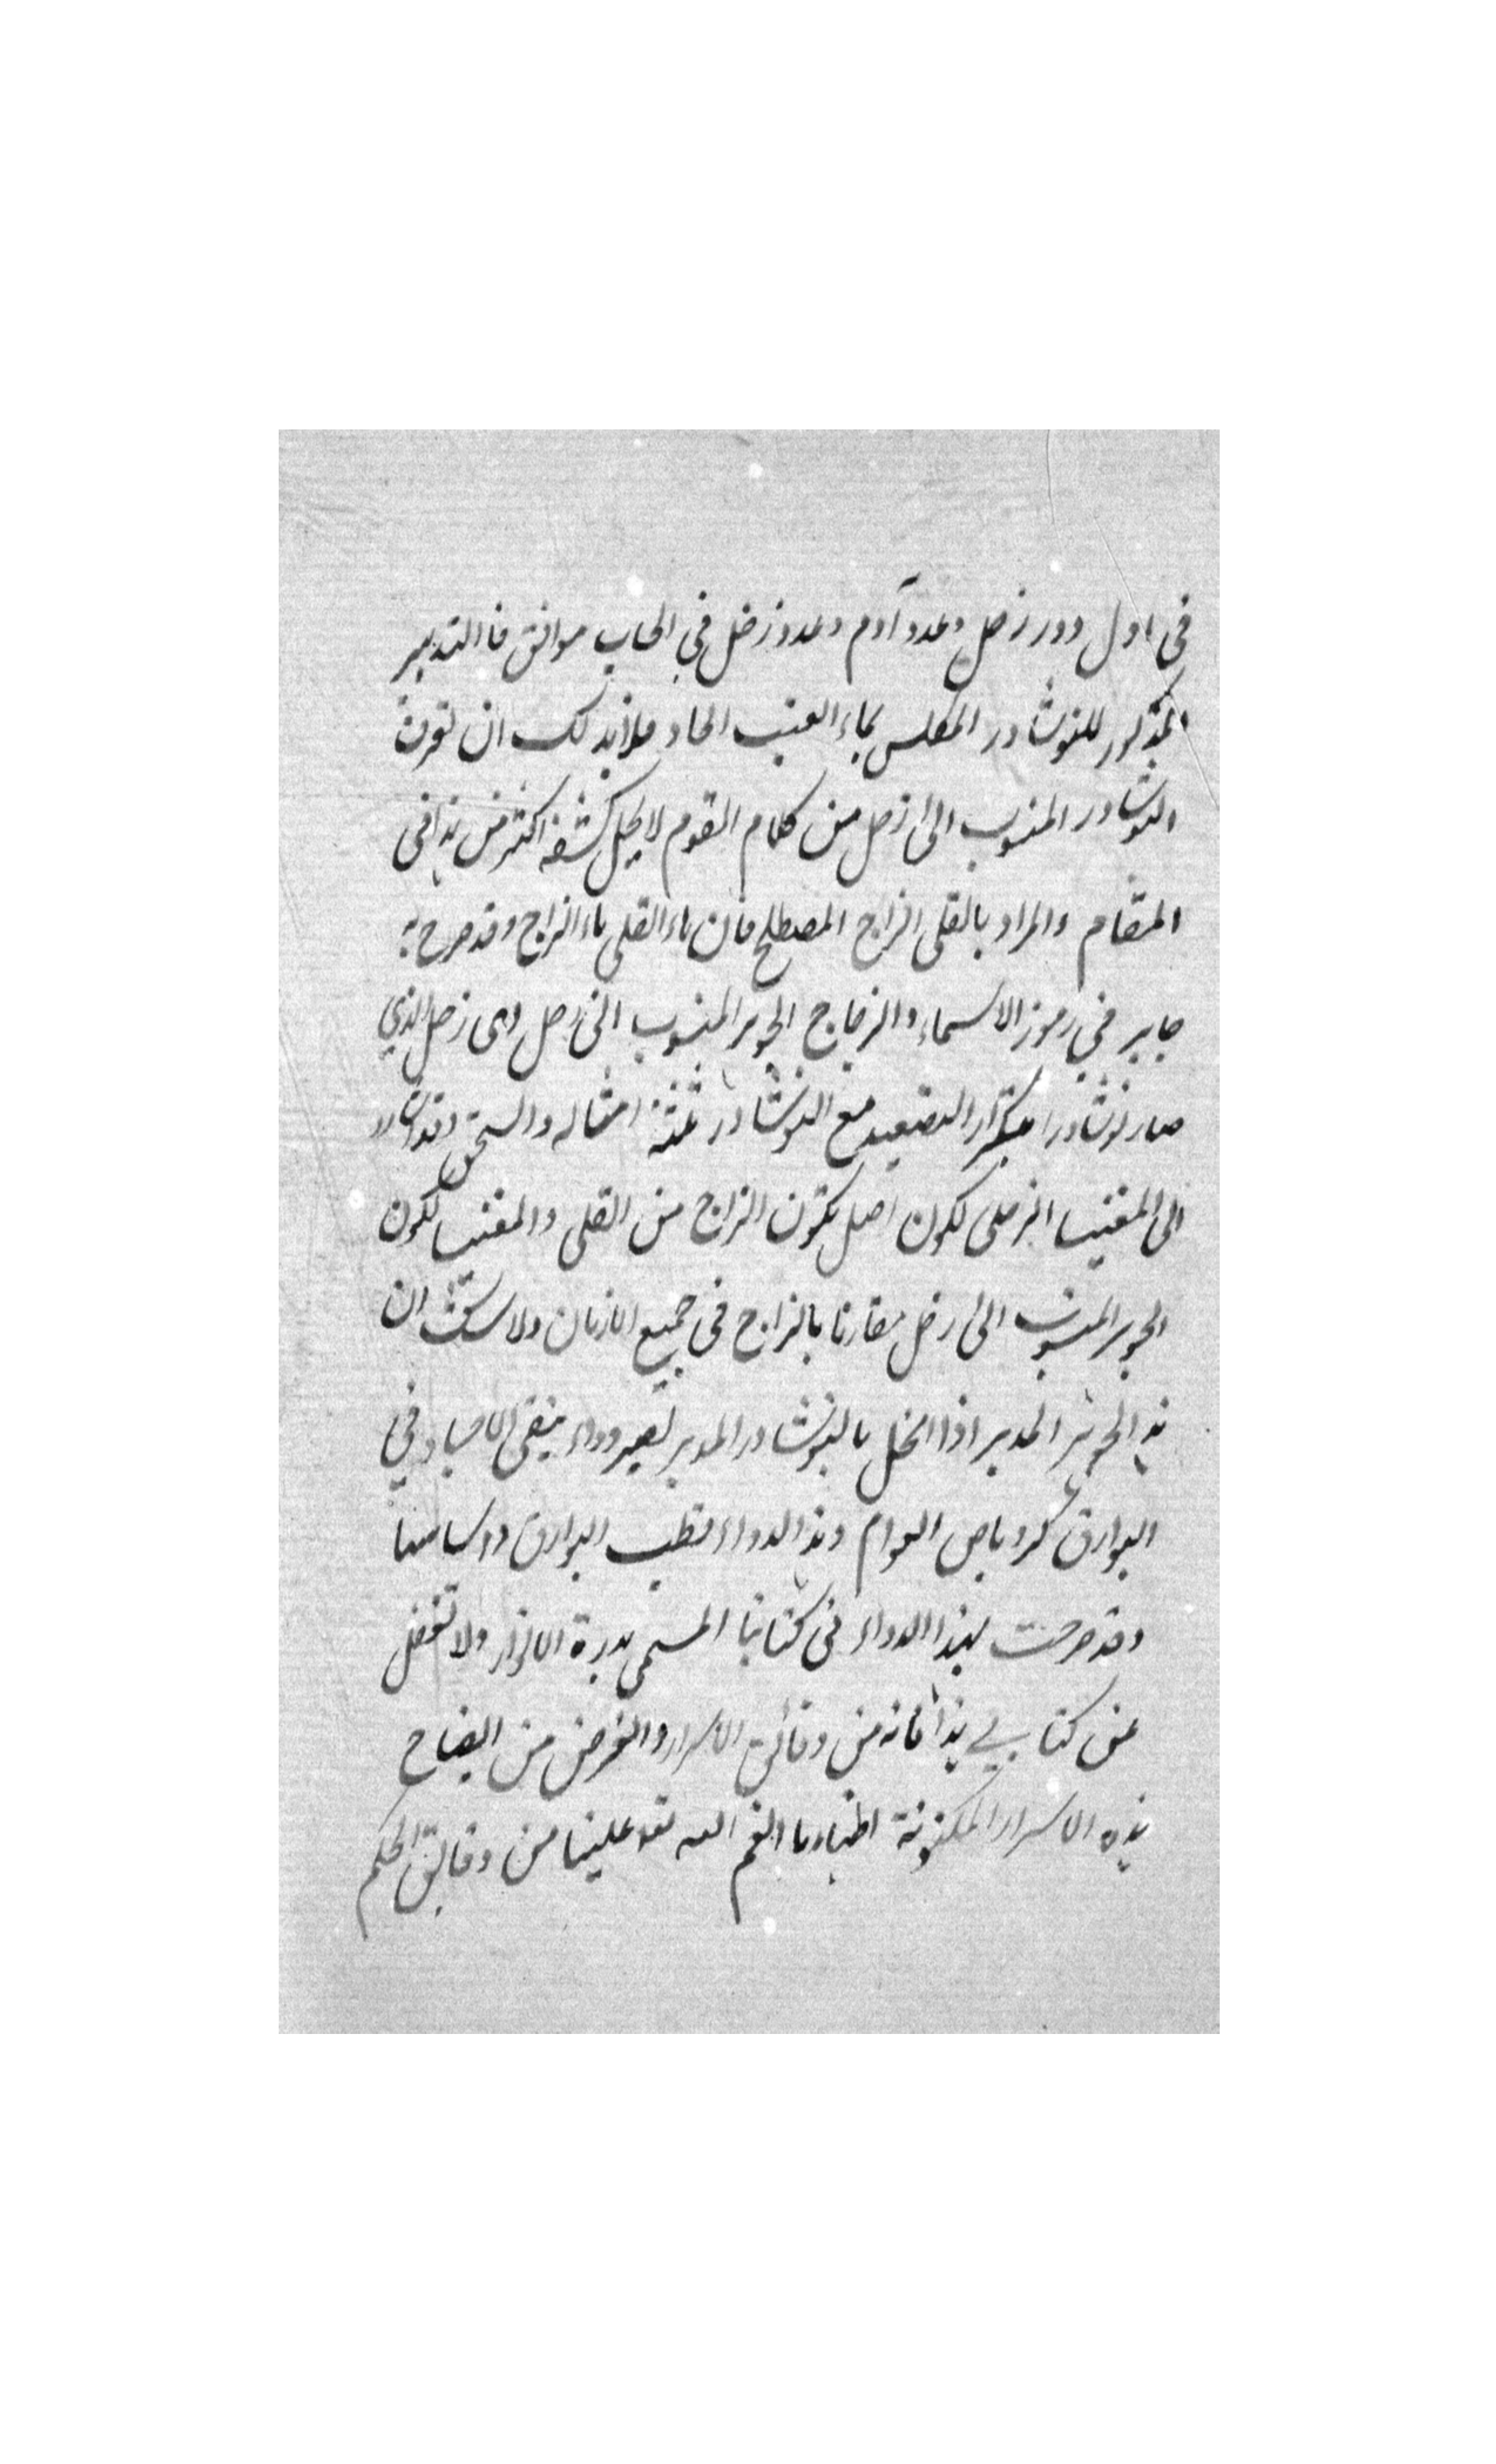 في اول دور زحل وعدد آدم وعدد زحل في الحساب موافق فالتدبير
المذكور للنوشادر المكلس بماء العنب الحاد فلابد لك ان تعرف
النوشادر المنسوب الى زحل من كلام القوم لا يحل كشفه اكثر من هذا في
المقام والمراد بالقلى الزاج المصطلح فان ماء القلى ماء الزاج وقد صرح به
جابر في رموز الاسماء والزجاج الجوهر المنسوب الى زحل وهى زحل الذي
صار نوشادرا بتكرار التصعيد مع النوشادر ثلثة امثاله والسحق وقد اشار
الى المغنيسا الزحلى لكون اصل تكون الزاج من القلى والمغنيسا لكون
الجوهر المنسوب الى زحل مقارنا بالزاج في جميع الازمان ولا شك ان
هذا الجوهر المدبر اذا انحل بالنوشادر المدبر يصير دواء ينقى الاجساد في
البوارق وهذا الدواء قطب البوارق واساسها
وقد صرحت بهذا الدواء في كتابنا المسمى بدرة الانوار ولا تغفل
عن كتابي هذا فانه من دقائق الاسرار والغرض من ايضاح
هذه الاسرار المكنونة اظهار ما انعم الله تعه علينا من دقايق الحكم